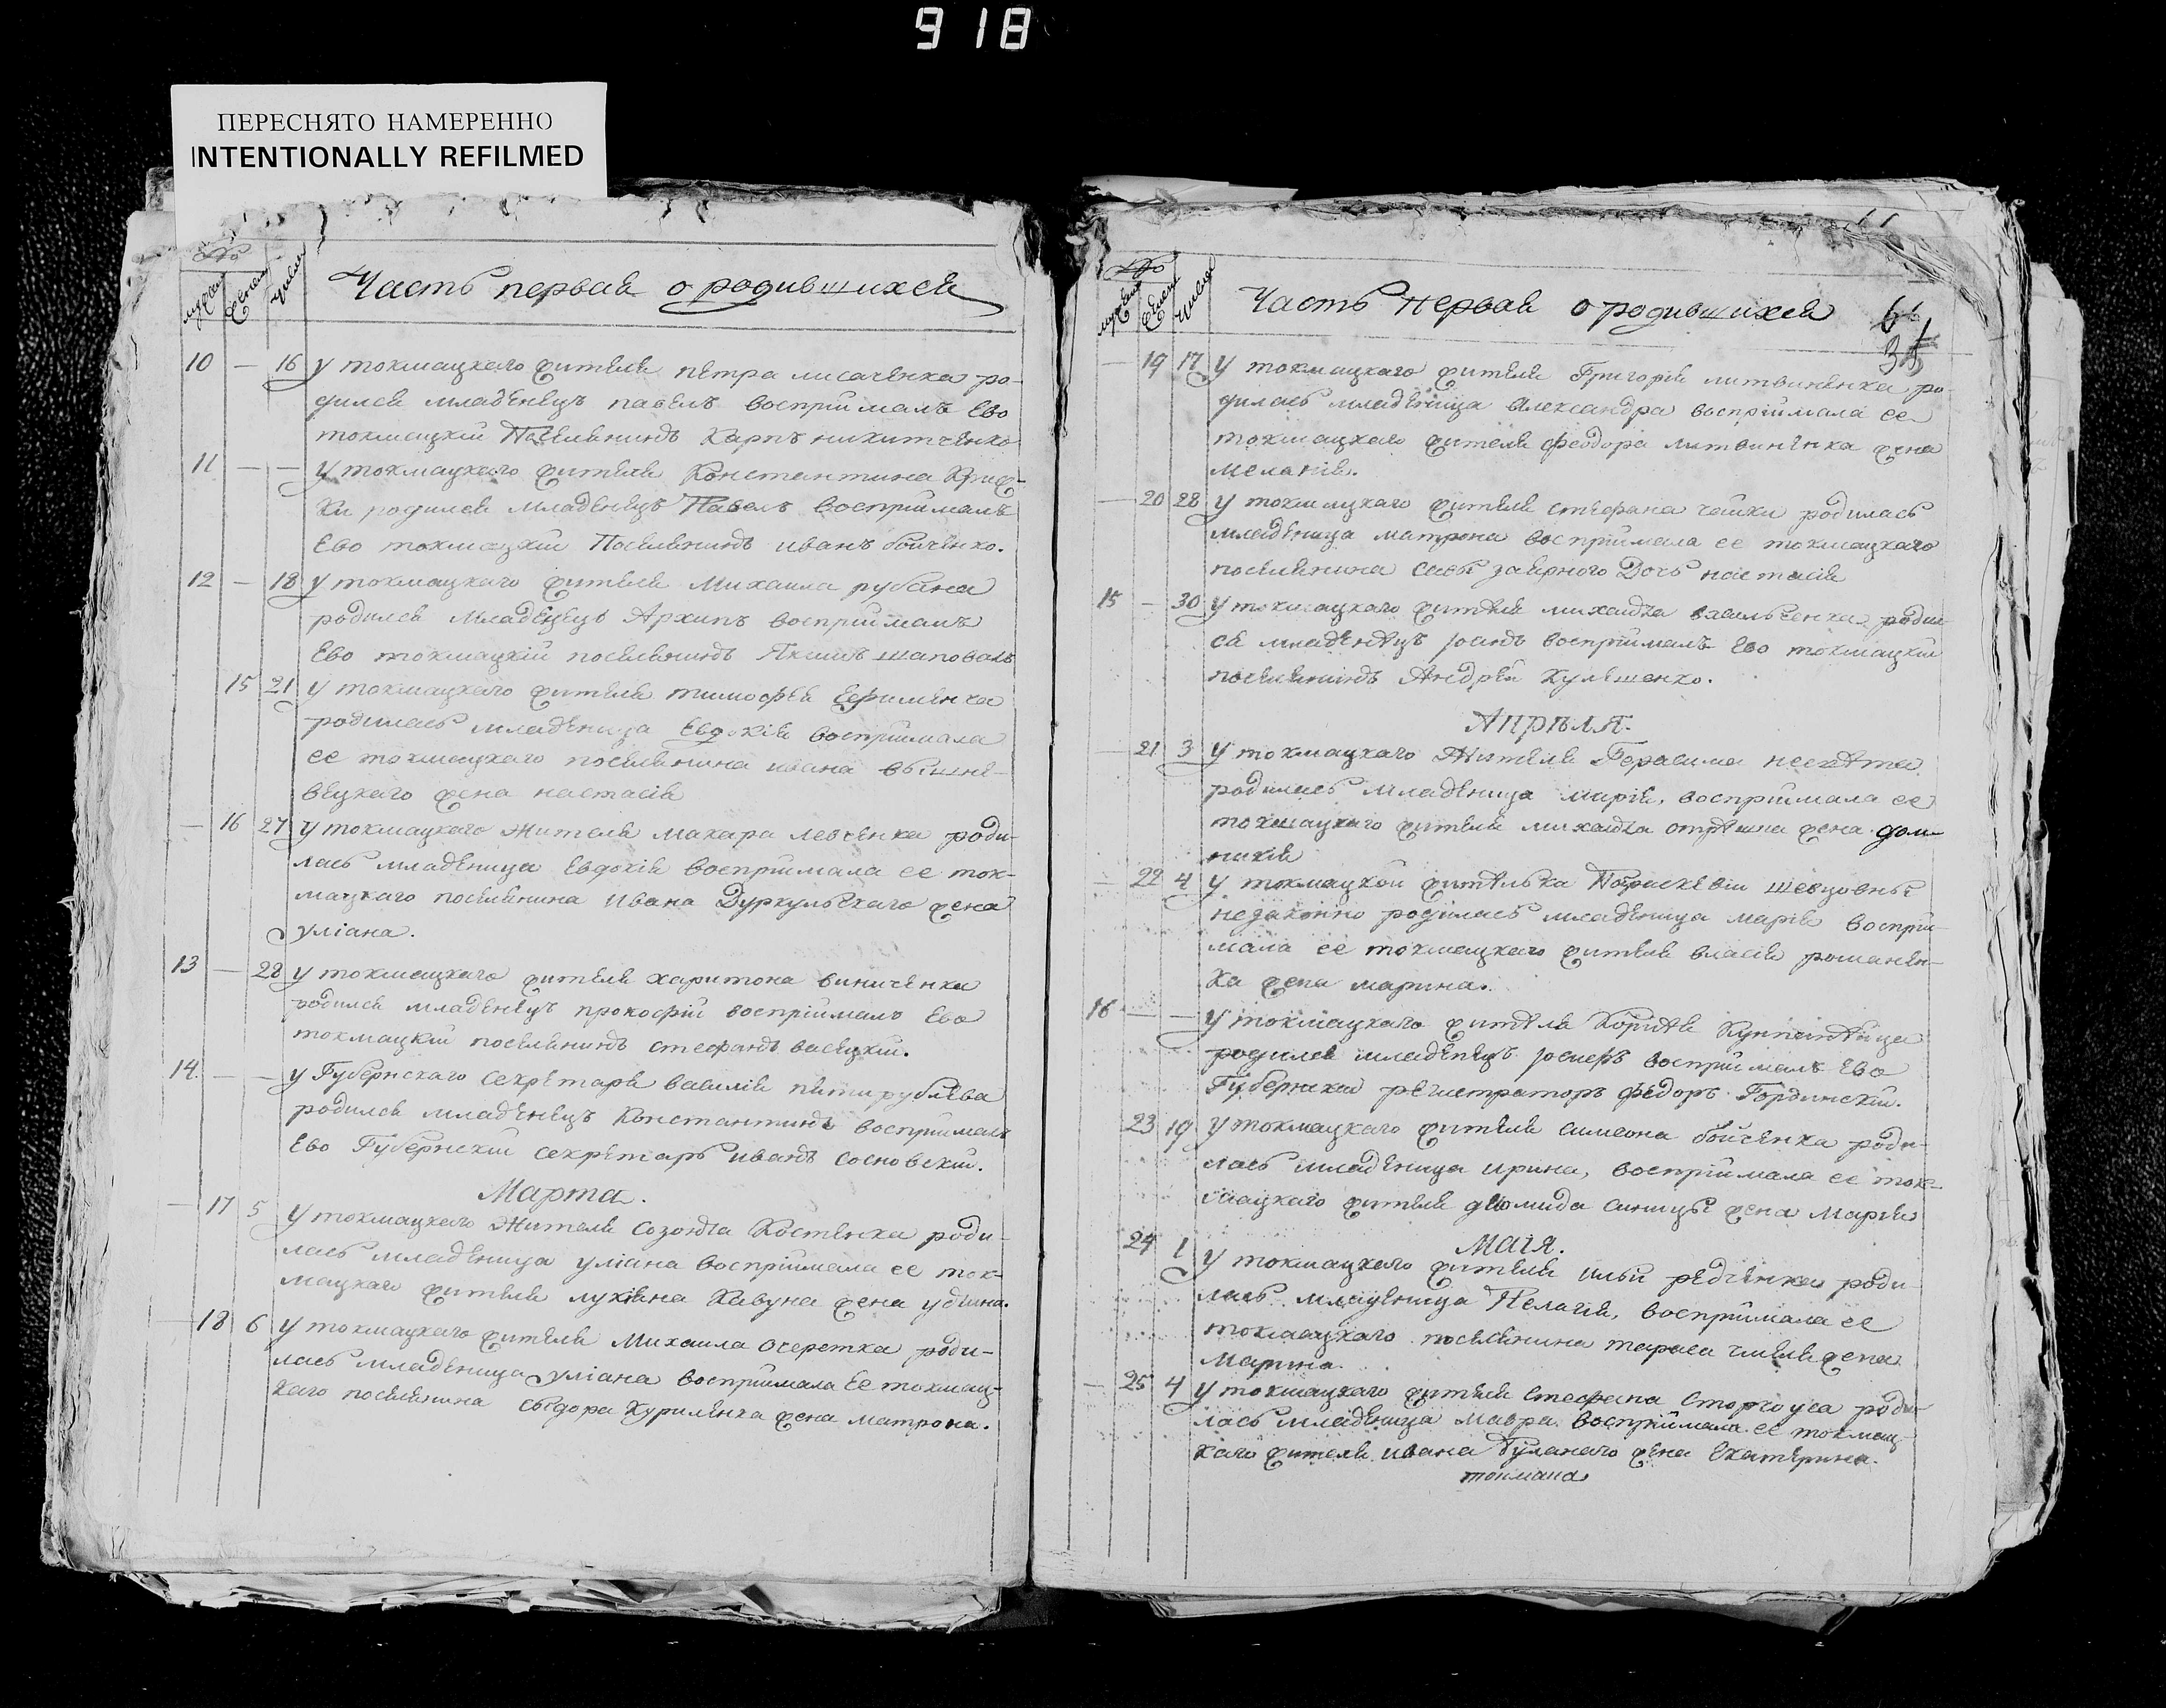 918
ПЕРЕСНЯТО НАМЕРЕННО
INTENTIONALLY REFILMED
№
мужеска женска число
Часть первая о родившихся
10 — 16 У токмацкаго жителя петра лисаченка ро-
дился младенецъ павелъ воспріималъ Ево
токмацкій Поселянинъ Карпъ никитченко
11 — — У токмацкаго жителя Константина Криж-
ки родился младенецъ Павелъ воспріималъ
Ево токмацкій Поселянинъ иванъ бойченко.
12 — 18 У токмацкаго жителя Михаила рубана
родился младенецъ Архипъ воспріималъ
Ево токмацкій поселянинъ Якимъ шаповалъ
15 21 У токмацкаго жителя тимофея Ефименка
родилась младеница Евдокія воспріимала
ее токмацкаго поселянина ивана вышне-
вецкаго жена настасія
— 16 27 У токмацкаго жителя макара левченка роди-
лась младеница Евдокія воспріимала ее ток-
мацкаго поселянина ивана Дуркульскаго жена
уліана.
13 — 28 У токмацкаго жителя харитона виниченка
родился младенецъ прокофій воспріималъ Ево
токмацкій поселянинъ стефанъ васецкій.
14. — — У Губернскаго секретаря василія пятирублева
родился младенецъ Константинъ воспріималъ
Ево Губернскій секретарь иванъ сосновскій.
Марта.
— 17 5 У токмацкаго жителя созонта Костенка роди-
лась младеница уліана воспріимала ее ток-
мацкаго жителя лукіяна Кавуна жена
— 18 6 У токмацкаго жителя Михаила очеретка роди-
лась младеница уліана воспріимала Ее токмац-
каго поселянина сыдора Куриленка жена матрона.
11
№
мужеска женска число
Часть первая о родившихся
66
35
— 19 17 У токмацкаго жителя Григорія литвиненка ро-
дилась младеница Александра воспріимала ее
токмацкаго жителя феодора литвиненка жена
меланія.
— 20 28 У токмацкаго жителя стефана чайки родилась
младеница матрона воспріимала ее токмацкаго
поселянина савы заярного Дочь настасія
15 — 30 У токмацкаго жителя михаила васильченка родил
ся младенецъ іоанъ воспріималъ Ево токмацкій
поселянинъ Андрей Кулешенко.
Апрѣля.
— 21 3 У токмацкаго Жителя Герасима
родилась младеница марія, воспріимала ее
токмацкаго жителя михаила жена дом-
никія
— 22 4 У токмацкой жителька Параскевіи шевцовны
незаконно родилась младеница марія воспріи-
мала ее токмацкаго жителя власія романен-
ка жена марина.
16 — — У токмацкаго жителя
родился младенецъ іосифъ воспріималъ Ево
Губернскій регистраторъ федоръ Гординскій.
23 19 У токмацкаго жителя симеона бойченка роди-
лась младеница ирина, воспріимала ее ток-
мацкаго жителя діомида синицы жена Марія
Маія.
24 1 У токмацкаго жителя ильи редченка роди
лась младеница Пелагія, воспріимала ее
токмацкаго поселянина тараса жена
Марина.
— 25 4 У токмацкаго жителя стефана Сторгоуса роди-
лась младеница мавра воспріимала ее токмац-
каго жителя ивана Гуланаго жена Екатерина.